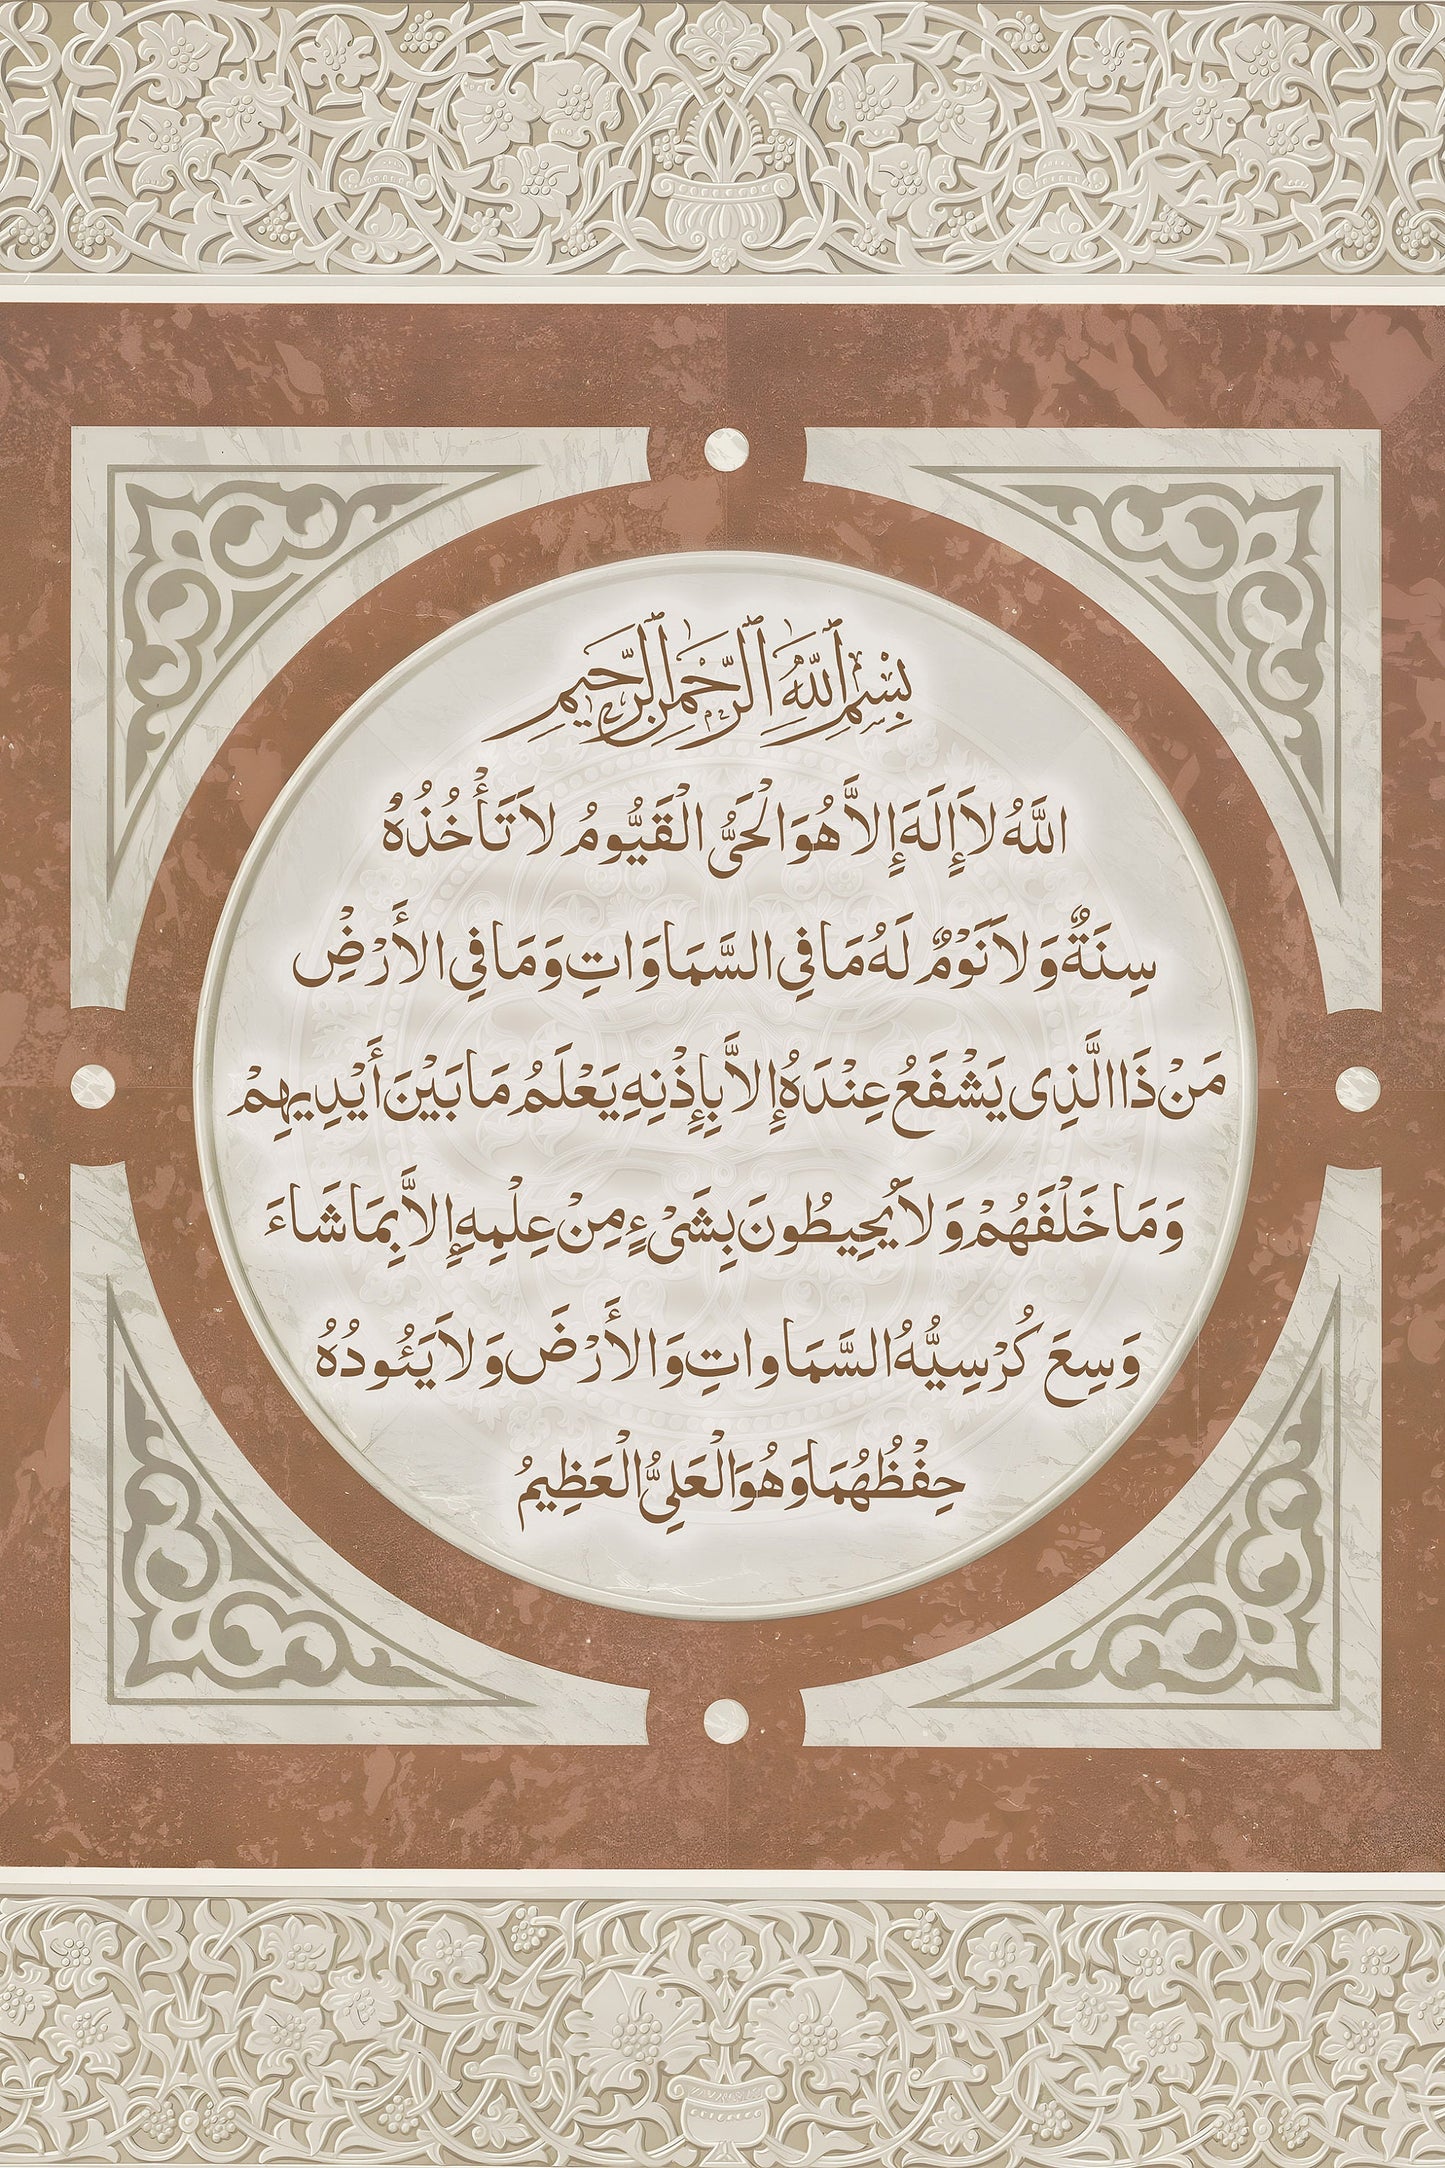 بِسْمِ ٱللَّهِ ٱلرَّحْمٰنِ ٱلرَّحِيمِ
اللَّهُ لاَ إِلَهَ إِلاَّ هُوَ الْحَيُّ الْقَيُّومُ لاَ تَأْخُذُهُ
سِنَةٌ وَلاَ نَوْمٌ لَهُ مَا فِي السَّمَاوَاتِ وَمَا فِي الأَرْضِ
مَنْ ذَا الَّذِى يَشْفَعُ عِنْدَهُ إِلاَّ بِإِذْنِهِ يَعْلَمُ مَا بَيْنَ أَيْدِيهِمْ
وَمَا خَلْفَهُمْ وَلاَ يُحِيطُونَ بِشَىْءٍ مِنْ عِلْمِهِ إِلاَّ بِمَا شَاءَ
وَسِعَ كُرْسِيُّهُ السَّمَاواتِ وَالأَرْضَ وَلاَ يَئُودُهُ
حِفْظُهُمَا وَهُوَ الْعَلِيُّ الْعَظِيمُ